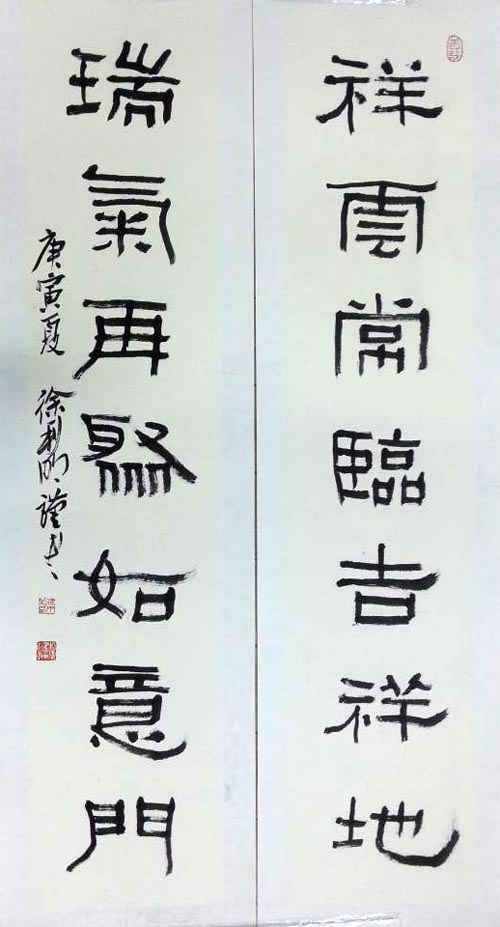 祥雲常臨吉祥地
瑞氣再聚如意門
庚寅夏 徐利明謹書